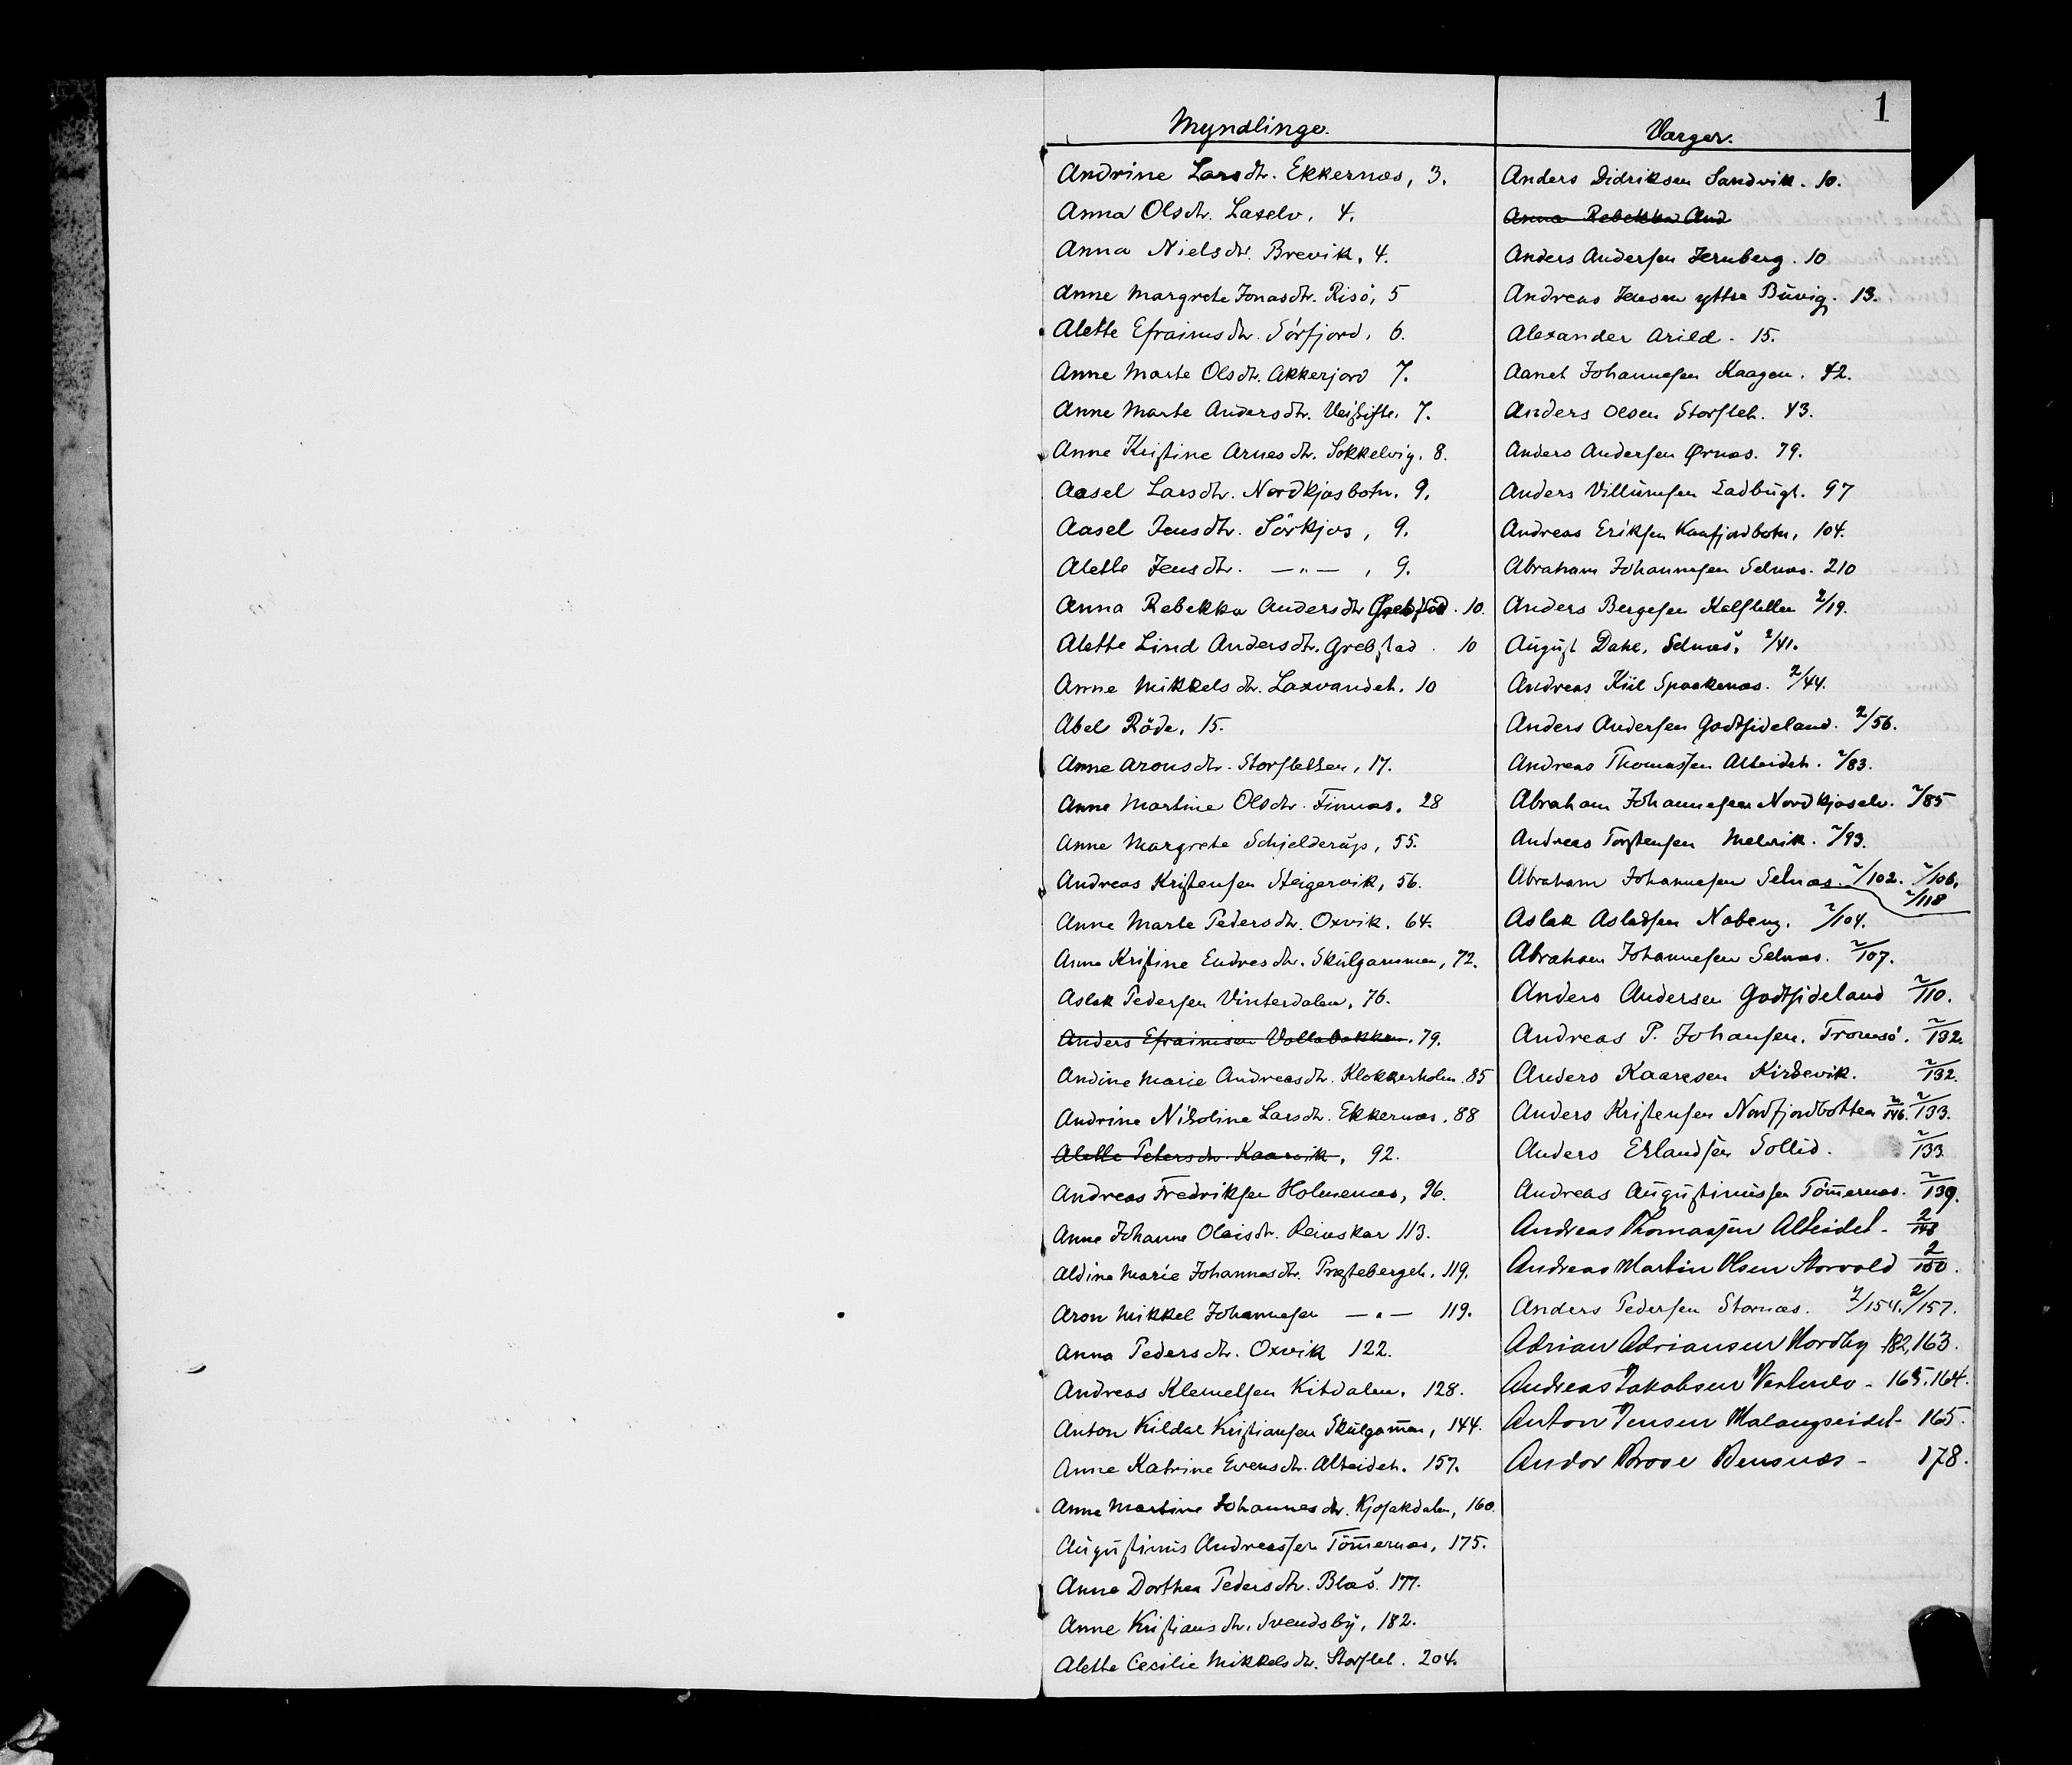 1
Myndlinge.
Andrine Larsdtr. Ekkernæs, 3.
Anna Olsdtr. Laxelv. 4.
Anna Nielsdtr. Brevik, 4.
Anne Margrete Jonasdtr. Risö, 5
Alette Efraimsdtr. Sörfjord, 6.
Anne Marte Olsdtr. Akkerjord 7.
Anne Marte Andersdtr. 7.
Anne Kristine Arnesdtr. Sokkelvig. 8.
Aasel Larsdtr. Nordkjosbotn. 9.
Aasel Jensdtr. Sörkjos, 9.
Alette Jensdtr. —"— , 9.
Anna Rebekka Andersdtr Grebstad. 10.
Alette Lind Andersdtr. Grebstad. 10
Anne Mikkelsdtr. Laxvandet. 10
Abel Röde, 15.
Anne Aronsdtr. Storsletten, 17.
Anne Martine Olsdtr. Finnæs. 28
Anne Margrete Schjelderup, 55.
Andreas Kristensen Steigervik, 56.
Anne Marte Pedersdtr. Oxvik. 64.
Anne Kristine Endresdtr. Skulgammen, 72.
Aslak Pedersen Vinterdalen, 76.
Anders Efraimsen Vollabakken. 79.
Andine Marie Andreasdtr. Klokkerholm. 85
Andrine Nikoline Larsdtr. Ekkernæs. 88
Alette Petersdtr Kaarvik, 92.
Andreas Fredriksen Holmenæs, 96.
Anne Johanne Olaisdtr. Reinskar 113.
Aldine Marie Johannesdtr. Præstebergets. 119.
Aron Mikkel Johannesen —"— 119.
Anna Pedersdtr. Oxvik 122.
Andreas Klemetsen Kitdalen. 128.
Anton Kildal Kristiansen Skulgam̅en, 144.
Anne Katrine Evensdtr. Alteidet. 157.
Anne Martine Johannesdtr. Kjosakdalen, 160.
Augustinus Andreassen Töm̅ernæs, 175.
Anne Dorthea Pedersdtr. 177.
Anne Kristiansdtr. Svendsby, 182.
Alette Cecilie Mikkelsdtr. Storslet. 204.
Værger.
Anders Didriksen Sandvik. 10.
Anna Rebekka And
Anders Andersen Jernberg. 10
Andreas Jensen yttre Buvig. 13.
Alexander Arild. 15.
Aanet Johannesen Kaagen. 42.
Anders Olsen Storslet. 43.
Anders Andersen Ørnæs. 79.
Anders Villumsen Ladbugt. 97
Andreas Eriksen Kaafjordbotn, 104.
Abraham Johannesen Selnæs. 210
Anders Bergesen Kalfsletten 2/19.
August Dahl, Selnæs. 2/41.
Andreas Kiil Spaakenæs. 2/44.
Anders Andersen Godtfideland. 2/56.
Andreas Thomassen Alteidet. 2/83.
Abraham Johannesen Nordkjoselv. 2/85
Andreas Torstensen Melvik. 2/93.
Abraham Johannesen Selnæs. 2/102. 2/106.
2/118
Aslak Aslaksen Naberg. 2/104.
Abraham Johannesen Selnæs. 2/107.
Anders Andersen Godtfideland 2/110.
Andreas P. Johansen, Tromsö. 2/132.
Anders Kaaresen Kirkevik. 2/132.
Anders Kristensen Nordfjordbotten 2/146. 2/133.
Anders Erlandsen Sollid. 2/133
Andreas Augustinussen Töm̅ernæs. 2/139.
Andreas Thomassen Alteidet - 2/143
Andreas Martin Olsen Storvold 2/150.
Anders Pedersen Stornæs. 2/154. 2/157.
Adrian Adriansen Nordby 182, 163.
Andreas Jakobsen Vestnes - 163. 164.
Anton Jensen Malangseidet - 165.
Andor Brose Bensnæs - 178.